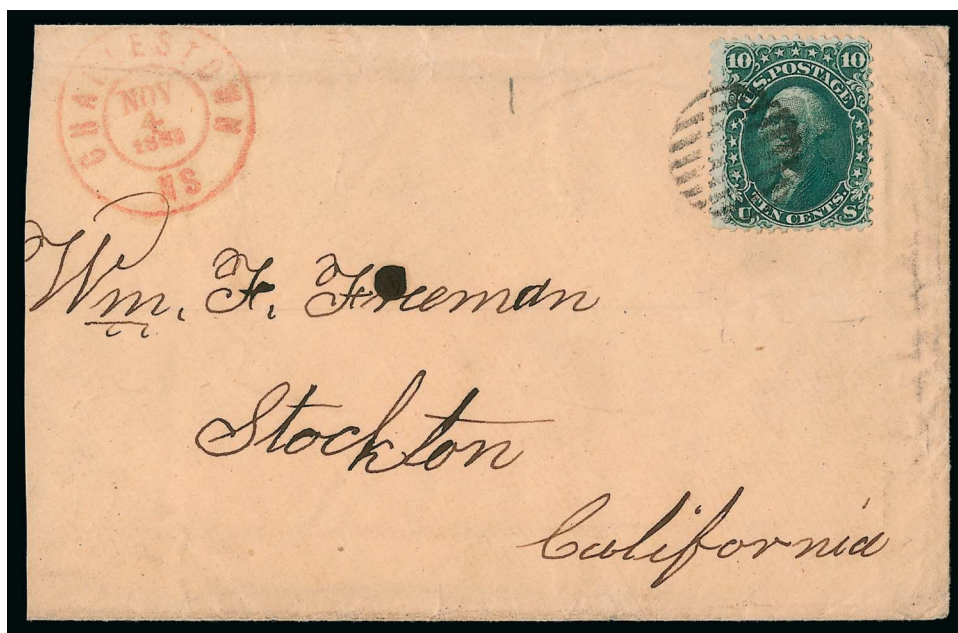 CHARLESTOWN
NOV
4
MS
10 10
U.S. POSTAGE
TEN CENTS.
U S
Wm. F. Freeman
Stockton
California